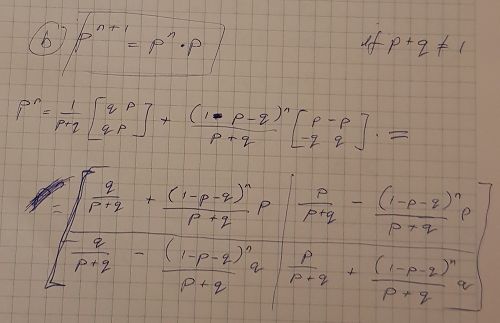 b) P^{n+1} = P^n · P if p+q ≠ 1
P^n = \frac{1}{p+q} \begin{bmatrix} q & p \\ q & p \end{bmatrix} + \frac{(1-p-q)^n}{p+q} \begin{bmatrix} p & -p \\ -q & q \end{bmatrix} · =
= \begin{bmatrix} \frac{q}{p+q} + \frac{(1-p-q)^n}{p+q} p & \frac{p}{p+q} - \frac{(1-p-q)^n}{p+q} p \\ \frac{q}{p+q} - \frac{(1-p-q)^n}{p+q} q & \frac{p}{p+q} + \frac{(1-p-q)^n}{p+q} q \end{bmatrix}